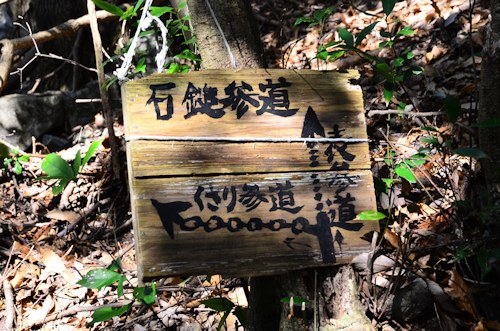 石鎚参道
表参道
くさり参道